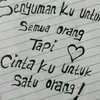 Senyuman ku untuk
Semua orang
Tapi
Cinta ku untuk
Satu orang!